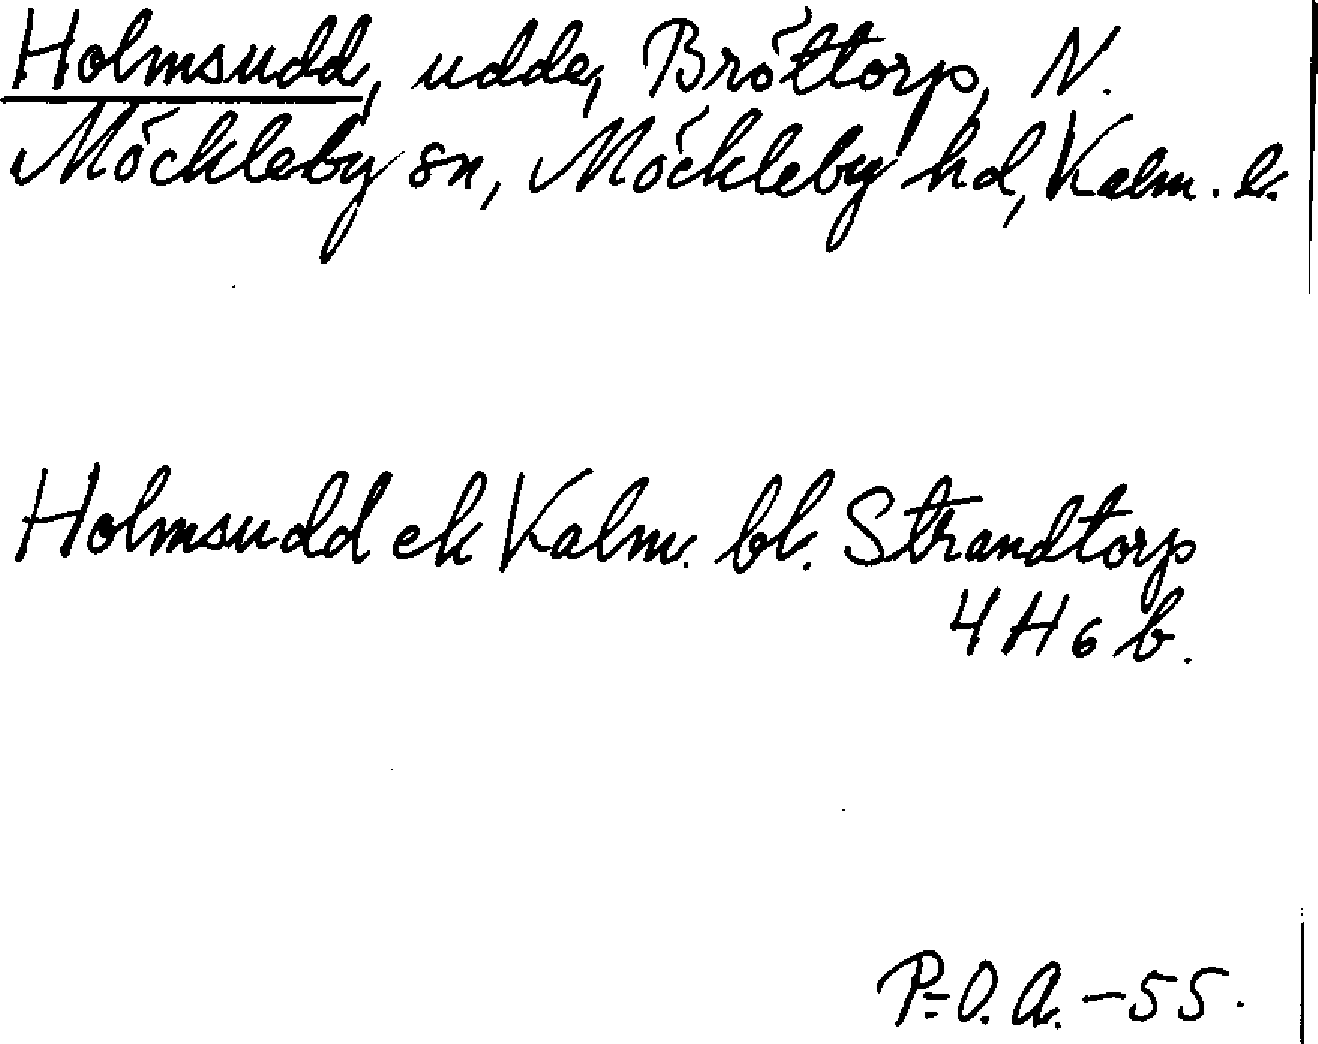 Holmsudd, udde, Bröttorp, N.
Möckleby sn, Möckleby hd, Kalm. l.
Holmsudd ek Kalm. bl. Strandtorp
4 H 6 b.
P-O. A. -55.